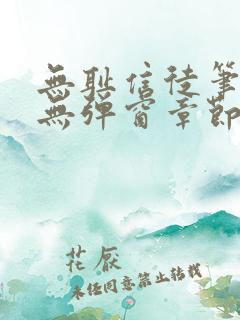 無恥信徒筆
無彈窗章節
花厭
未經同意禁止轉載